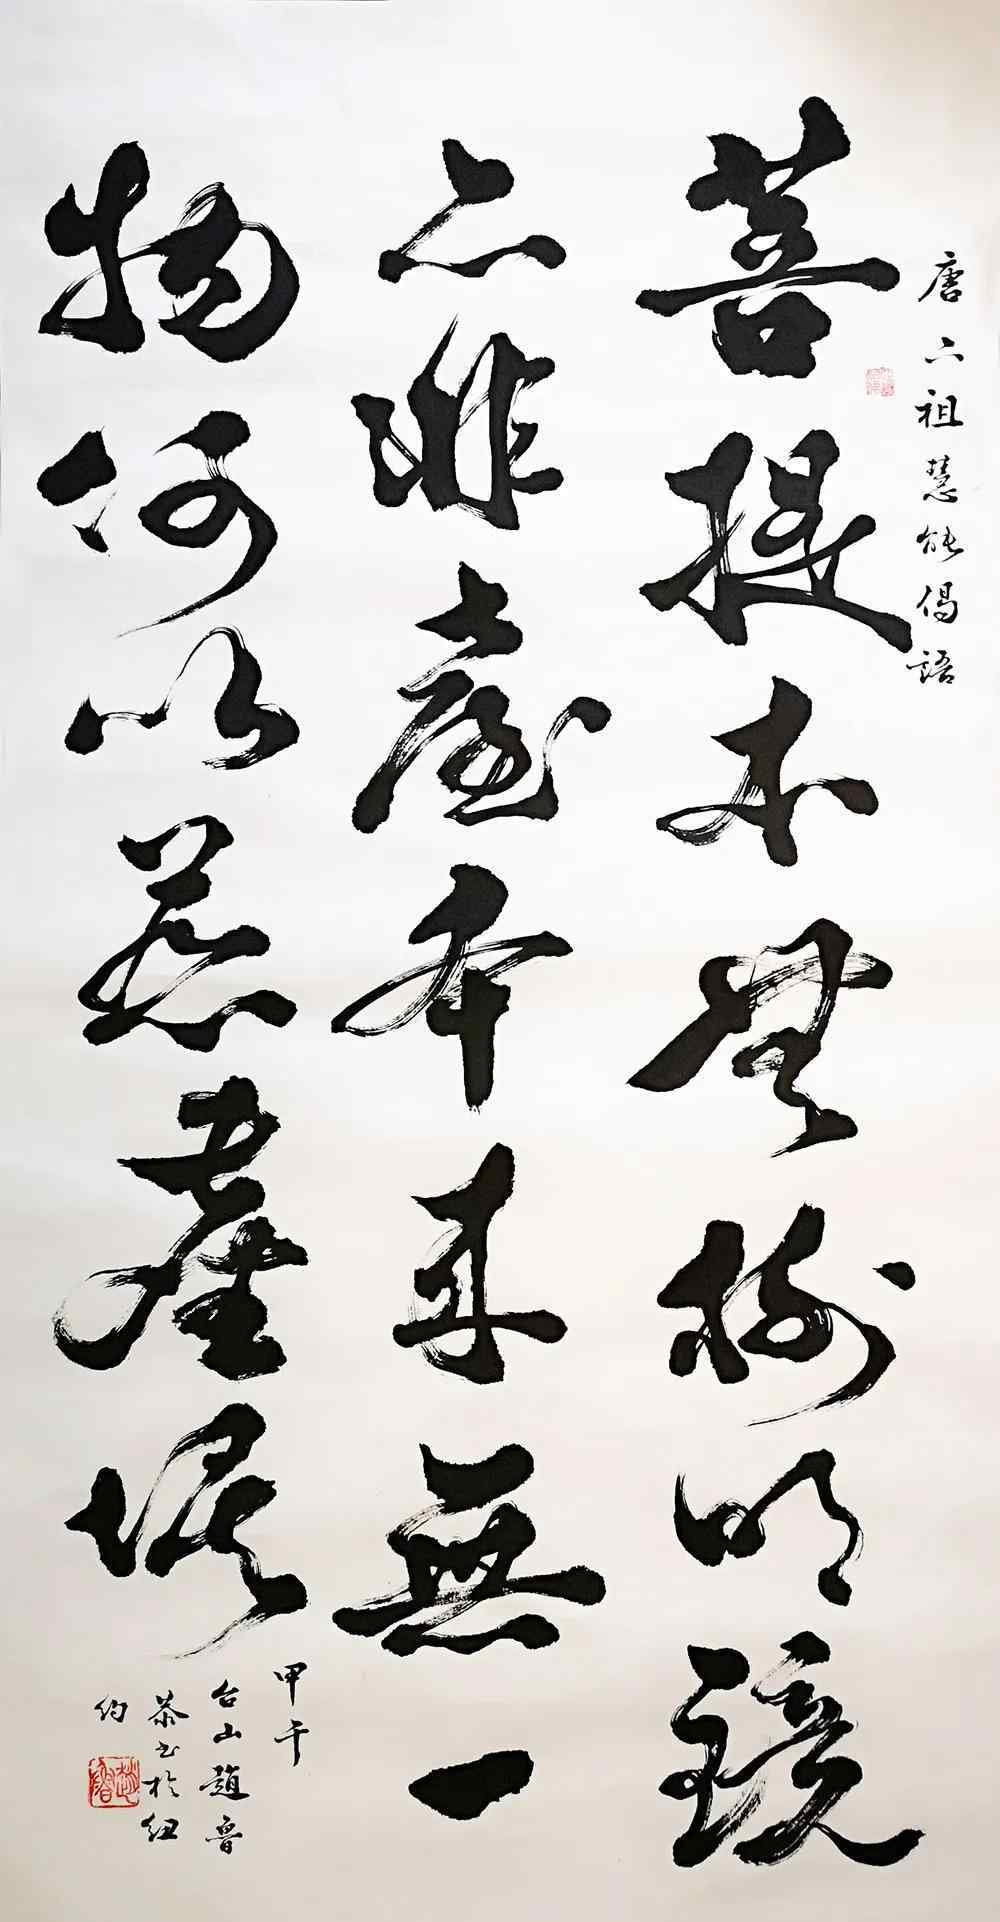 唐六祖慧能偈語
菩提本無樹明鏡
亦非臺本來無一
物何以惹塵埃
甲午
台山趙魯
恭書於紐
約